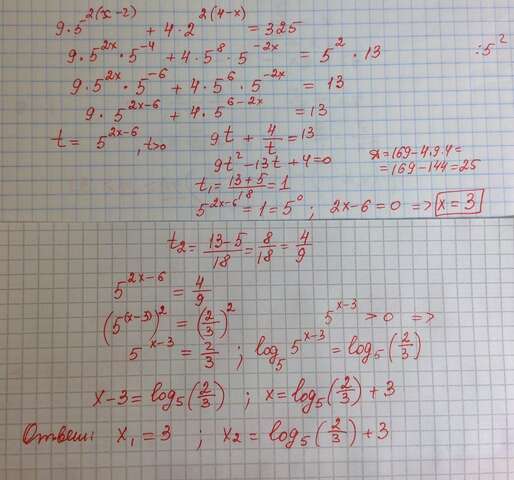 9·5^{2(x-2)} + 4·2^{2(4-x)} = 325
9·5^{2x}·5^{-4} + 4·5^{8}·5^{-2x} = 5^{2}·13 :5^{2}
9·5^{2x}·5^{-6} + 4·5^{6}·5^{-2x} = 13
9·5^{2x-6} + 4·5^{6-2x} = 13
t = 5^{2x-6}, t>0 9t + 4/t = 13 D=169-4·9·4=
9t^{2}-13t+4=0 =169-144=25
t₁ = (13+5)/18 = 1
5^{2x-6} = 1 = 5^{0} ; 2x-6=0 => x=3
t₂ = (13-5)/18 = 8/18 = 4/9
5^{2x-6} = 4/9
(5^{(x-3)})^{2} = (2/3)^{2} 5^{x-3} > 0 =>
5^{x-3} = 2/3 ; log₅ 5^{x-3} = log₅(2/3)
x-3 = log₅(2/3) ; x = log₅(2/3) + 3
Ответ: x₁ = 3 ; x₂ = log₅(2/3) + 3